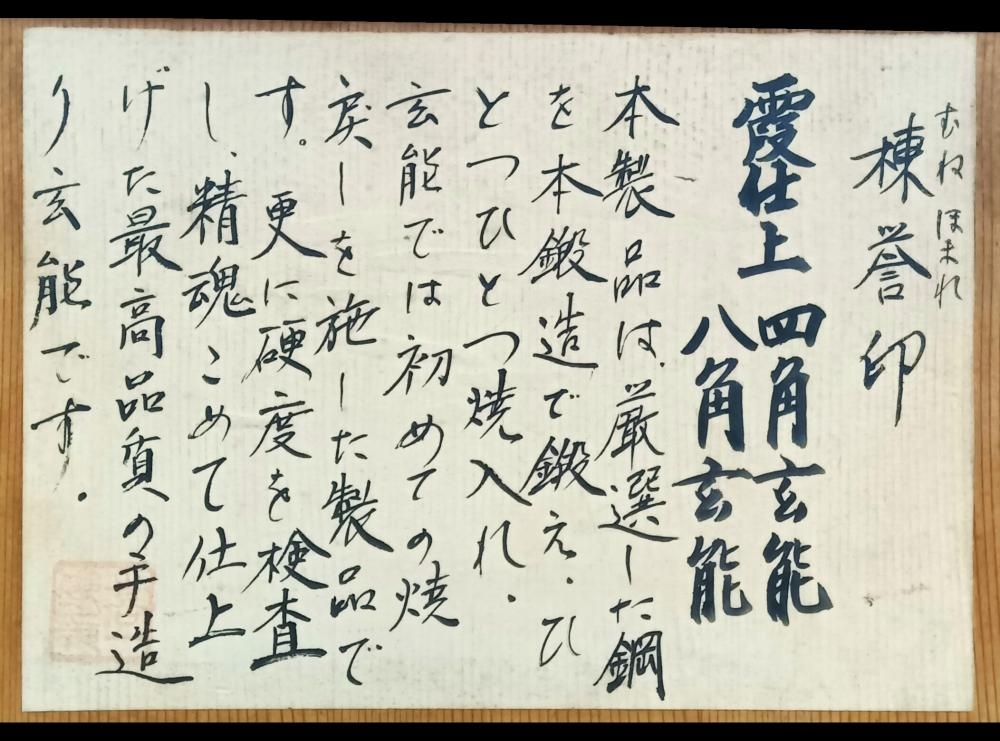 むね ほまれ
棟誉印
霞仕上 四角玄能
八角玄能
本製品は、厳選した鋼
を本鍛造で鍛え、ひ
とつひとつ焼入れ、
玄能では初めての焼
戻しを施した製品で
す。更に硬度を検査
し、精魂こめて仕上
げた最高品質の手造
り玄能です。